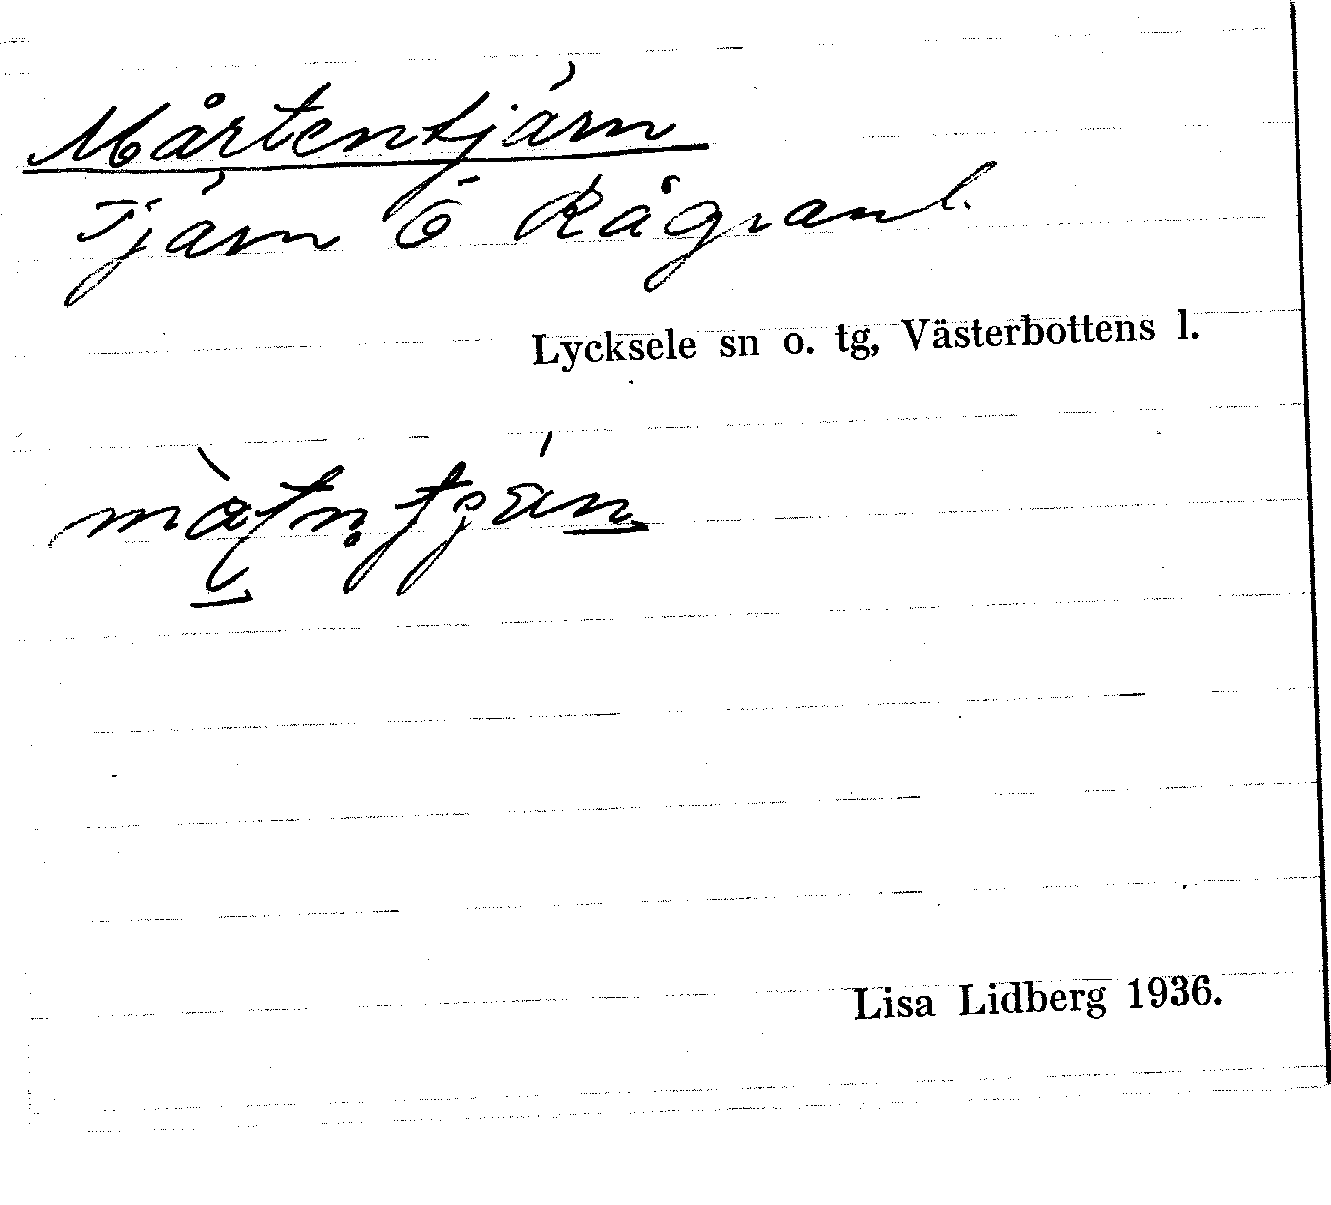 Mårtentjärn
Tjärn Ö Rågranl.
Lycksele sn o. tg, Västerbottens l.
Lisa Lidberg 1936.